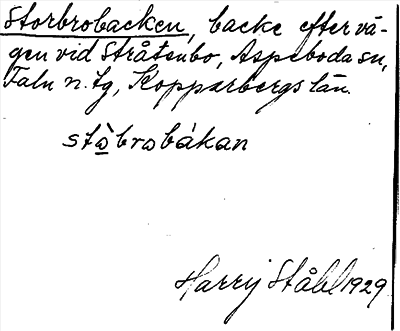 Storbrobacken, backe efter vä-
gen vid Stråtenbo, Aspeboda sn,
Falu n. tg, Kopparbergs län.
stò̱brobákan
Harry Ståhl 1929